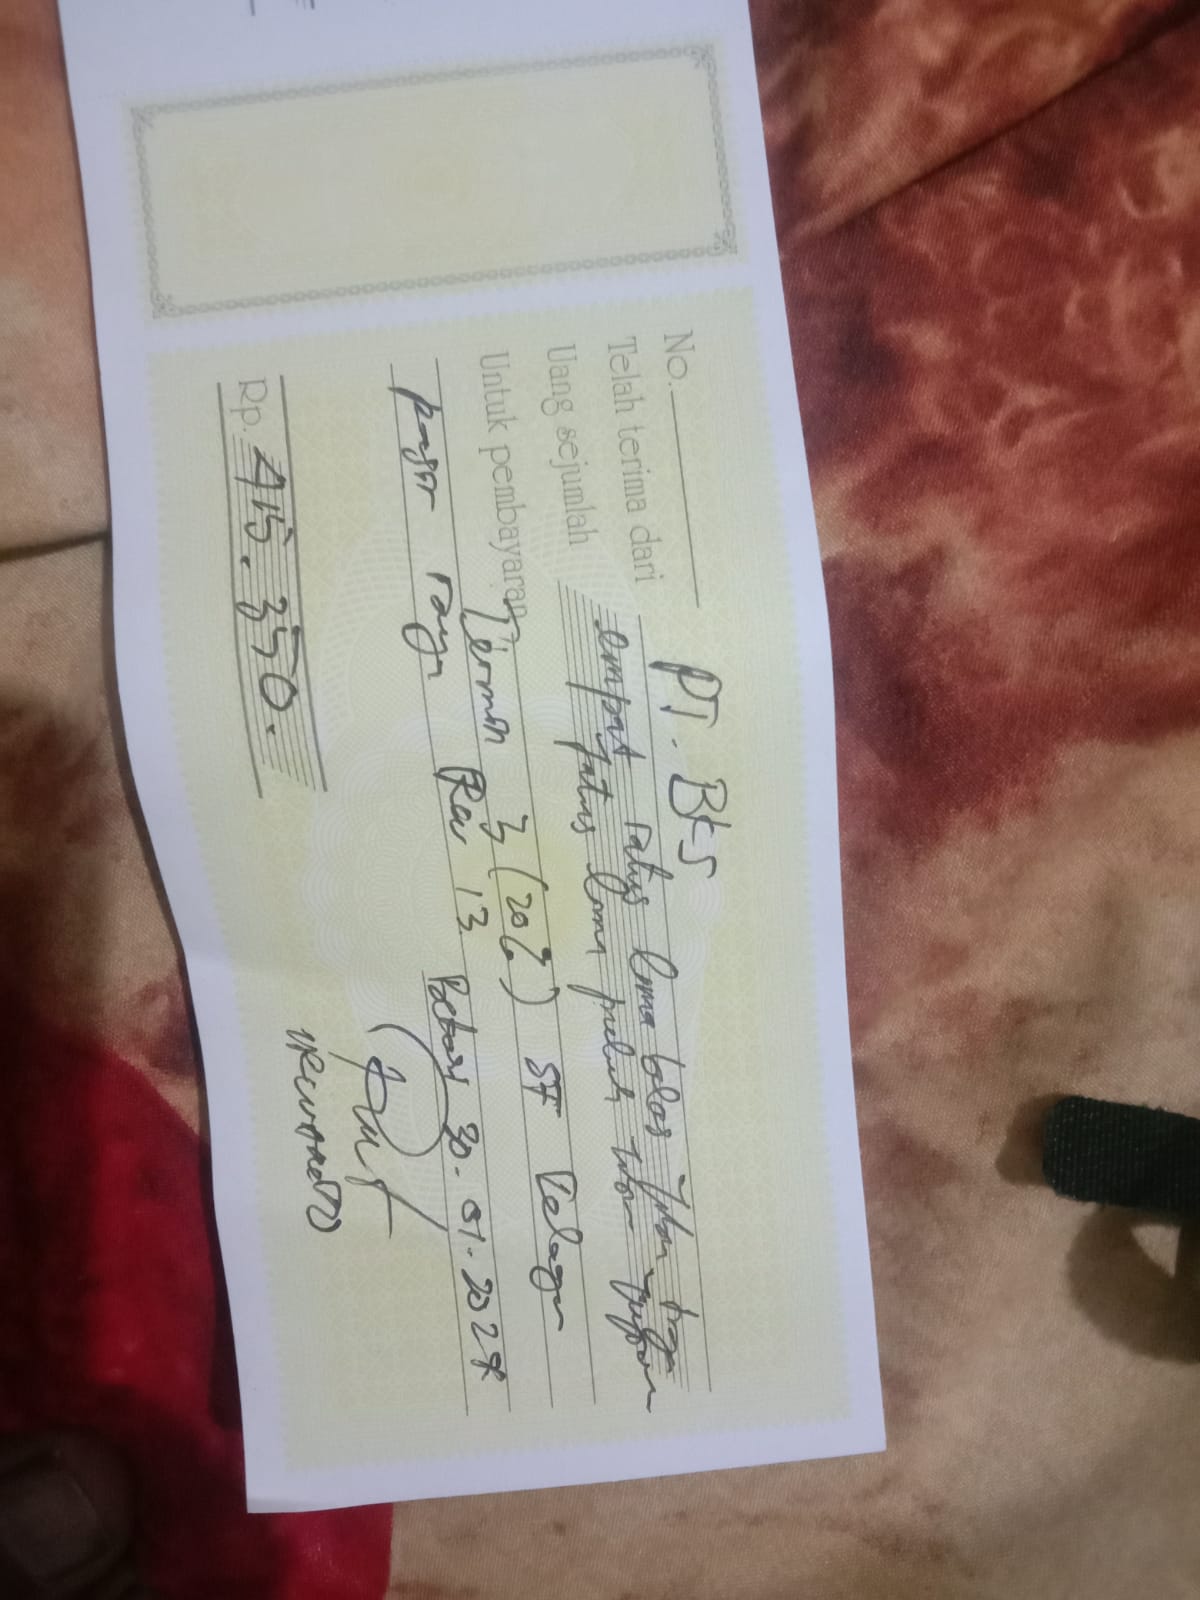 No.
Telah terima dari PT. BKS
Uang sejumlah empat ratus lima belas juta tiga
ratus lima puluh ribu rupiah
Untuk pembayaran Termin 3 (20%) ST Telaga
pasir raya Rev 13.
Bekasi 30-01-2024
Rp. 415.350.
IRWANTO